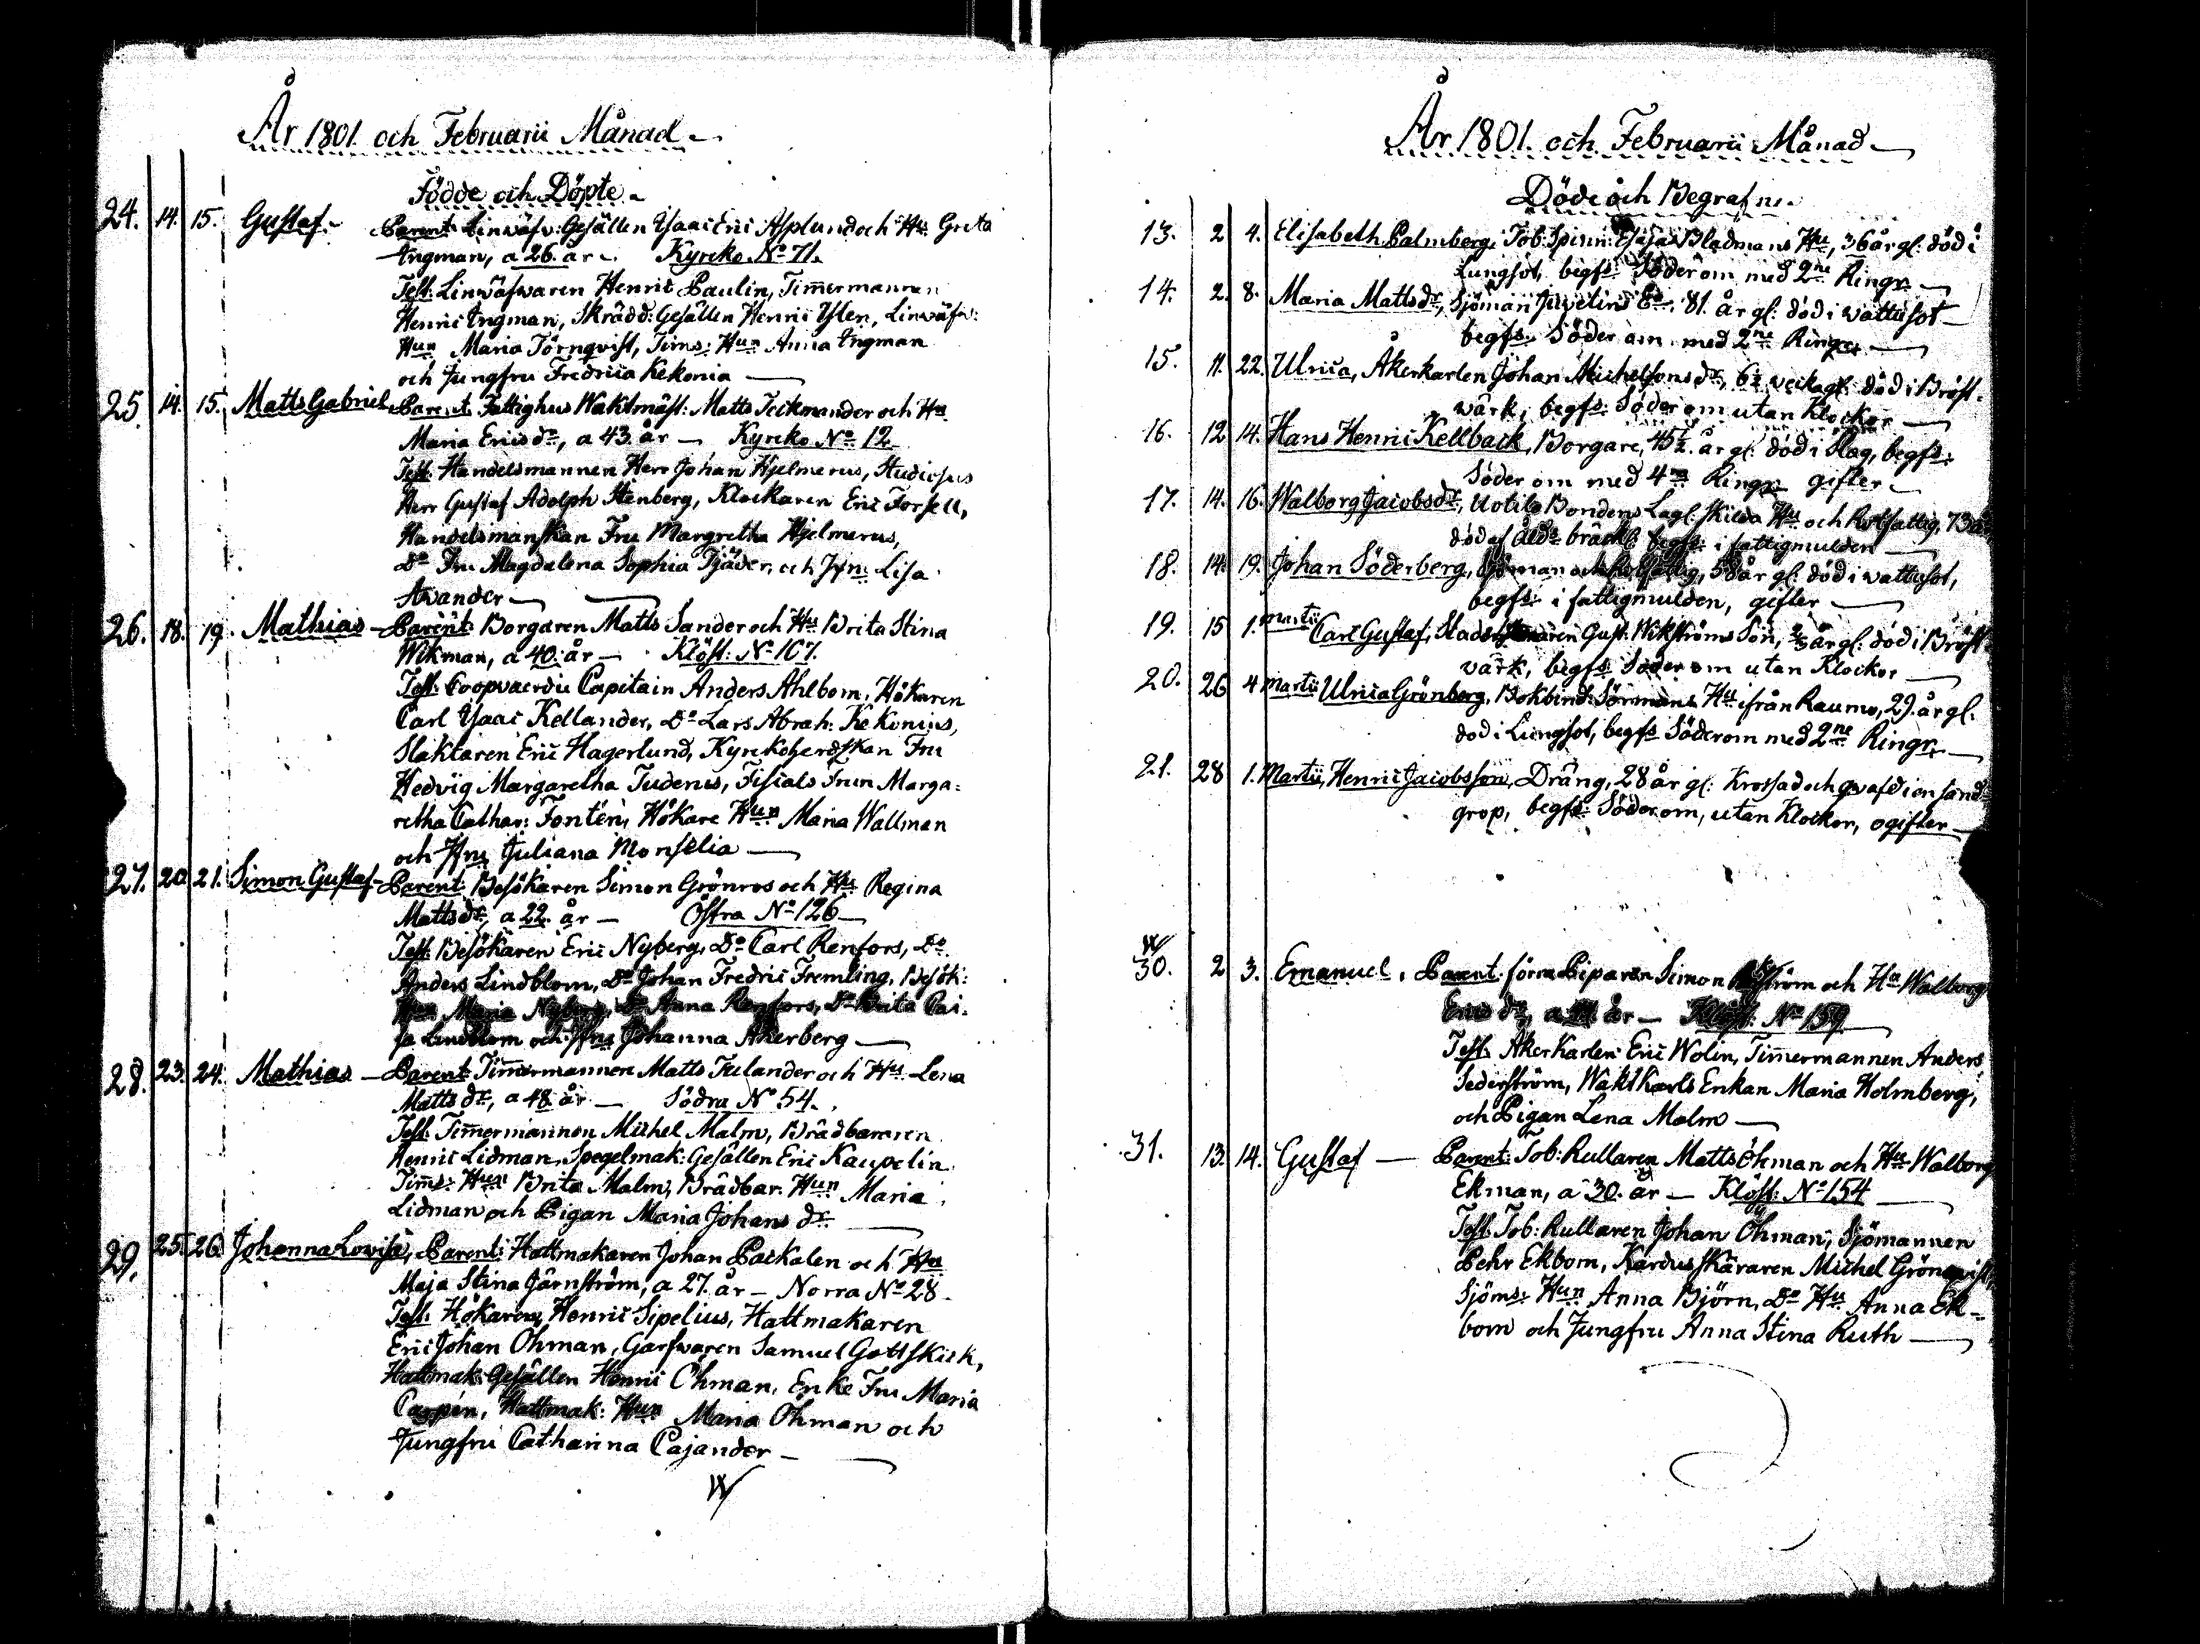 År 1801. och Februarii Månad
Födde och Döpte
24. 14. 15. Gustaf Parent: Linwäfv: Gesällen Isaac Eric Asplund och Hu Greta
Ingman, a 26. år Kyrcko No 71.
Test: Linwäfwaren Henric Paulin, Timmermannen
Henric Ingman, Skrädd: Gesällen Henric Ylén, Linwäfv:
Hun Maria Törnqvist, Tims: Hun Anna Ingman
och Jungfru Fredrica Kekonia
25. 14. 15. Matts Gabriel Parent: Fattighus Waktmäst: Matts Teckmander och Hu
Maria Ericsdr, a 43. år Kyrcko No 12
Test: Handelsmannen Herr Johan Hjelmerus, Studiosus
Herr Gustaf Adolph Stenberg, Klockaren Eric Forsell,
Handelsmanskan Fru Margretha Hjelmerus,
Do Fru Magdalena Sophia Tjäder, och Jfn: Lisa
Awander
26. 18. 19. Mathias Parent: Borgaren Matts Sander och Hu Brita Stina
Wikman, a 40. år Klöst: No 107.
Test: Coopvaerdie Capitain Anders Ahlbom, Hökaren
Carl Isaac Kellander, Do Lars Abrah: Kekonius,
Slaktaren Eric Hagerlund, Kyrkoherdskan Fru
Hedvig Margaretha Tudenus, Fiscals Frun Marga=
retha Cathar: Fontén, Hökare Hun Maria Wallman
och Jfn: Juliana Monselia
27. 20. 21. Simon Gustaf Parent: Besökaren Simon Grönroos och Hu Regina
Mattsdr, a 22. år Östra No 126
Test: Besökaren Eric Nyberg, Do Carl Renfors, Do
Anders Lindblom, Do Johan Fredric Fremling, Besök:
Hun Maria Nyberg, Do Anna Renfors, Do Brita Cai=
sa Lindblom och Jfn: Johanna Åkerberg
28. 23. 24. Mathias Parent: Timmermannen Matts Julander och Hu Lena
Mattsdr, a 48. år Södra No 54.
Test: Timmermannen Michel Malm, Brädbararen
Henric Lidman, Spegelmak: Gesällen Eric Kaupelin
Tims: Hun Brita Malm, Brädbar. Hun Maria
Lidman och Pigan Maria Johansdr.
29. 25. 26. Johanna Lovisa, Parent: Hattmakaren Johan Packalen och Hu
Maja Stina Järnström, a 27. år Norra No 28
Test: Hökaren Henric Sipelius, Hattmakaren
Eric Johan Öhman, Garfwaren Samuel Gottskick,
Hattmak: Gesällen Henric Öhman, Enke Fru Maria
Carpén, Hattmak: Hun Maria Öhman och
Jungfru Catharina Cajander
År 1801. och Februarii Månad
Döde och Begrafne
13. 2 4. Elisabeth Palmberg, Tob: Spinn: Esaias Bladmans Hu, 36 år gl: död i
Lungsot, begfs: Söder om med 2ne Ringr.
14. 2. 8. Maria Mattsdr, Sjöman Juvelins Ea, 81. år gl: död i wattusot
begfs: Söder om med 2ne Ringr
15. 11. 22. Ulrica, Åkerkarlen Johan Michelssons dr, 6½ weckagl: död i Bröst=
wärk, begfs: Söder om utan Klockor
16. 12 14. Hans Henric Kellback, Borgare, 45½ år gl: död i Slag, begfs:
Söder om med 4ra Ringr gifter
17. 14. 16. Walborg Jacobsdr, Uotila Bondens Lagl: skilda Hu och Rotfattig, 73 år
död af åld: bräckl: begfs: i fattigmulden
18. 14. 19. Johan Söderberg, Sjöman och Rotfattig, 58 år gl: död i wattusot,
begfs: i fattigmulden, gifter
19. 15 1. Martii Carl Gustaf, Gust. Wikströms Son, år gl: död i Bröst
värk, begfs: Söder om utan Klockor
20. 26 4 Martii Ulrica Grönberg, Bokbind: Sörmans Hu ifrån Raumo, 29. år gl.
död i Lungsot, begfs Söder om med 2ne Ringr.
21. 28 1. Martii, Henric Jacobsson, Dräng, 28 år gl: Krossad och qwafd i en sand=
grop, begfs: Söder om, utan Klockor, ogifter
30. 2 3. Emanuel, Parent: förra Piparen Simon och Hu Walborg
Ericsdr, a år Klöst: No 159
Test: Åker Karlen Eric Wolin, Timmermannen Anders
Sederström, Wakt Karls Enkan Maria Holmberg,
och Pigan Lena Malm
31. 13. 14. Gustaf Parent: Tob: Rullaren Matts Öhman och Hu Walborg
Ekman, a 30. år Klöst: No 154
Test: Tob: Rullaren Johan Öhman, Sjömannen
Pehr Ekbom, Kardusskäraren Michel Grönqvist,
Sjöms: Hun Anna Björn, Do Hu Anna Ek=
bom och Jungfru Anna Stina Ruth